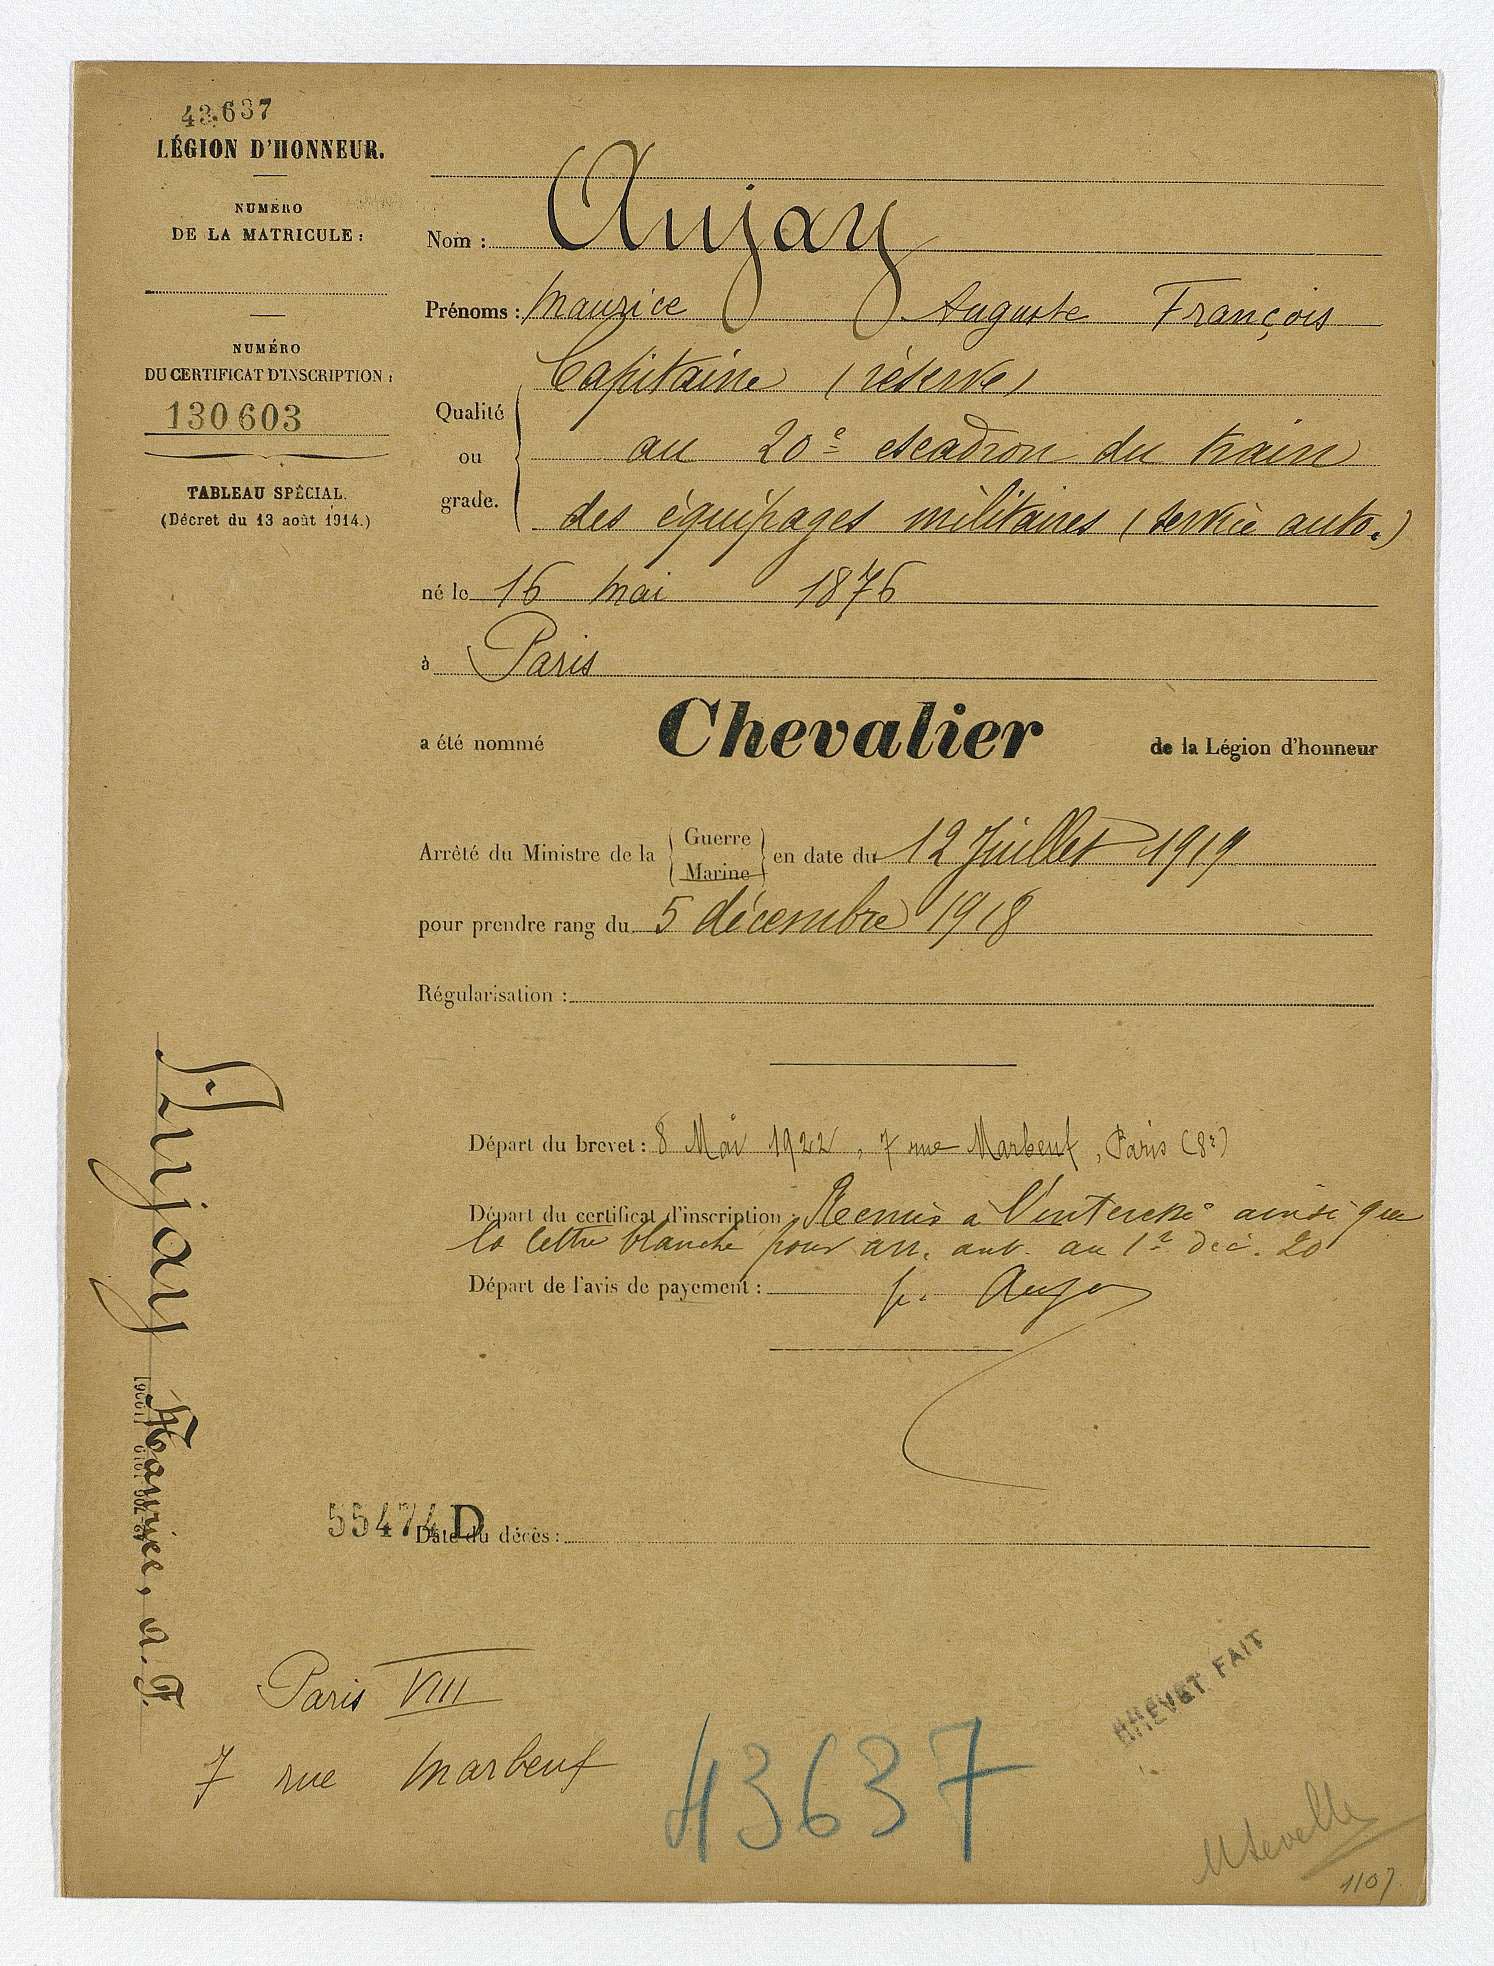 43.637
LÉGION D'HONNEUR.
NUMÉRO
DE LA MATRICULE :
NUMÉRO
DU CERTIFICAT D'INSCRIPTION :
130 603
TABLEAU SPÉCIAL.
(Décret du 13 août 1914.)
Nom : Aujay
Prénoms : Maurice Auguste François
Qualité ou grade.
Capitaine (réserve)
au 20e escadron du train
des équipages militaires (service auto.)
né le 16 mai 1876
à Paris
a été nommé Chevalier de la Légion d'honneur
Arrêté du Ministre de la Guerre Marine en date du 12 Juillet 1919
pour prendre rang du 5 décembre 1918
Régularisation :
Départ du brevet : 8 Mai 1922, 7 rue Marbeuf, Paris (8e)
Départ du certificat d'inscription : Remis à l'intéressé ainsi que
la lettre blanche pour arr. ant. au 1er déc. 20
Départ de l'avis de payement :
Aujay Maurice, A. F.
55474 D
Date du décès :
Paris VIII
7 rue Marbeuf
BREVET FAIT
43637
1107